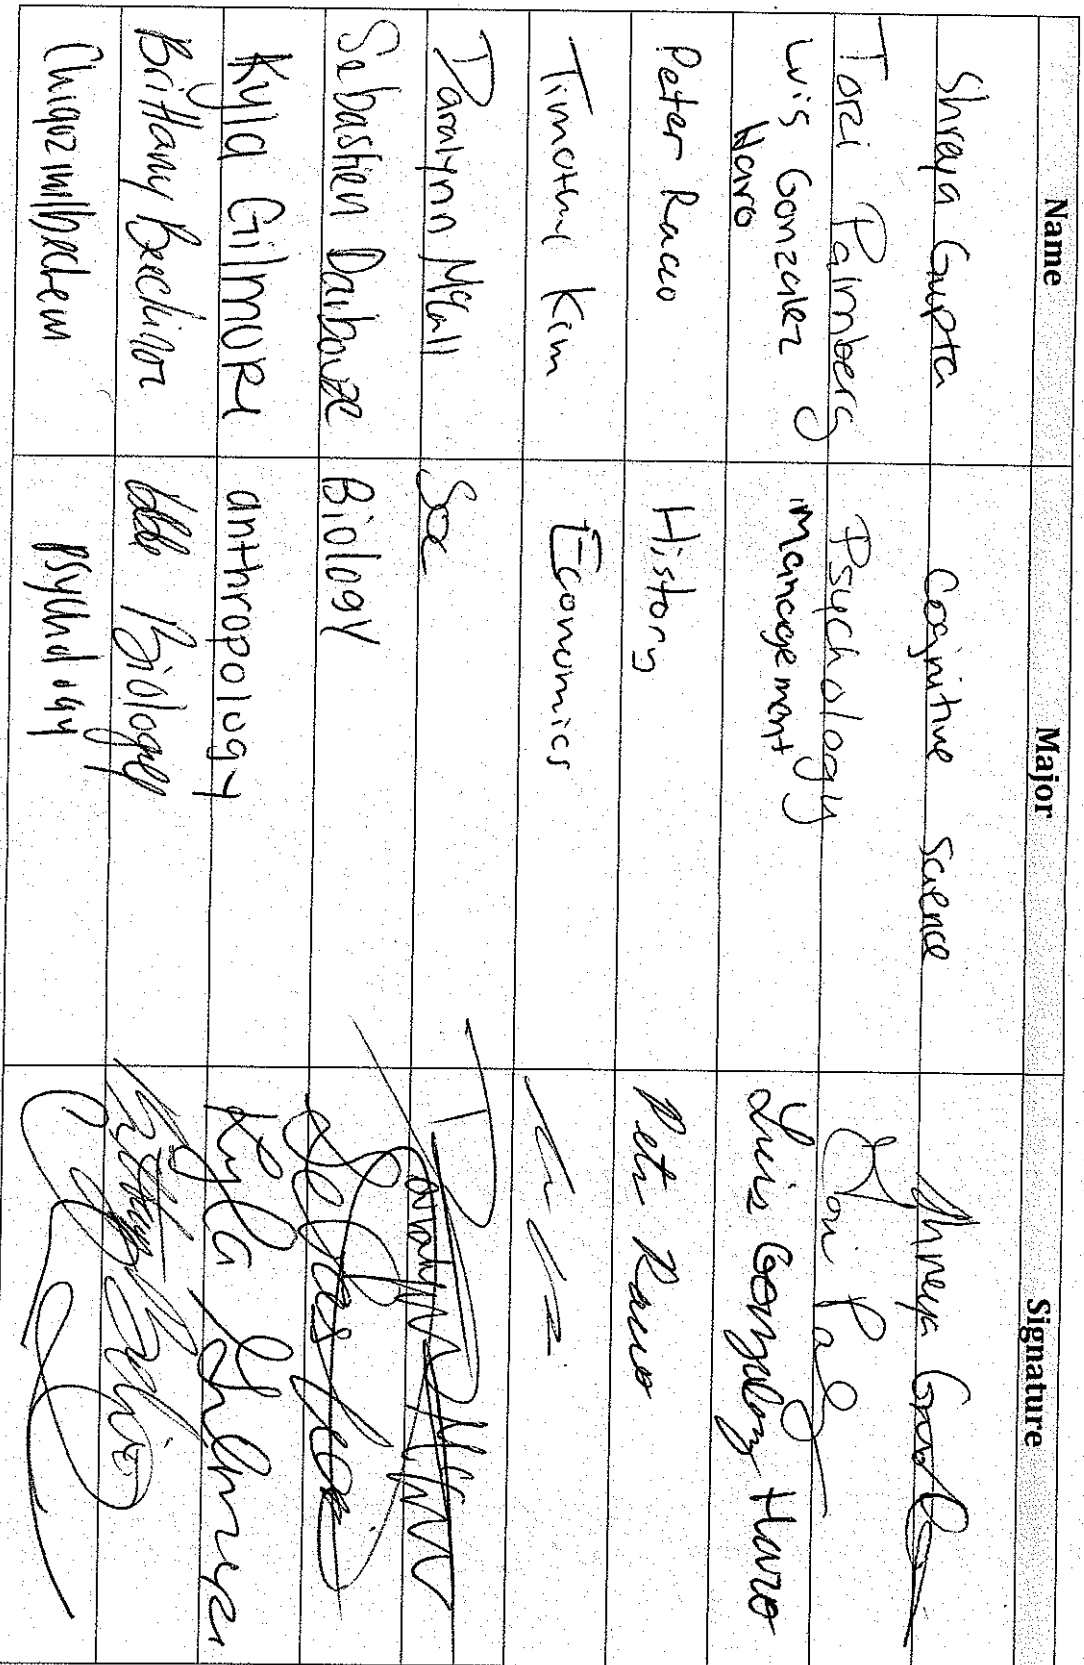 Name Major Signature
Shreya Gupta Cognitive Science Shreya Gupta
Tori Palmberg Psychology Tori
Luis Gonzalez Haro Management Luis Gonzalez Haro
Peter Racco History Peter Racco
Timothy Kim Economics
Daralynn McCall Soc Daralynn
Sebastien Biology
Kyla Gilmore anthropology Kyla Gilmore
Brittany Bechilor Biology Brittany
psychology